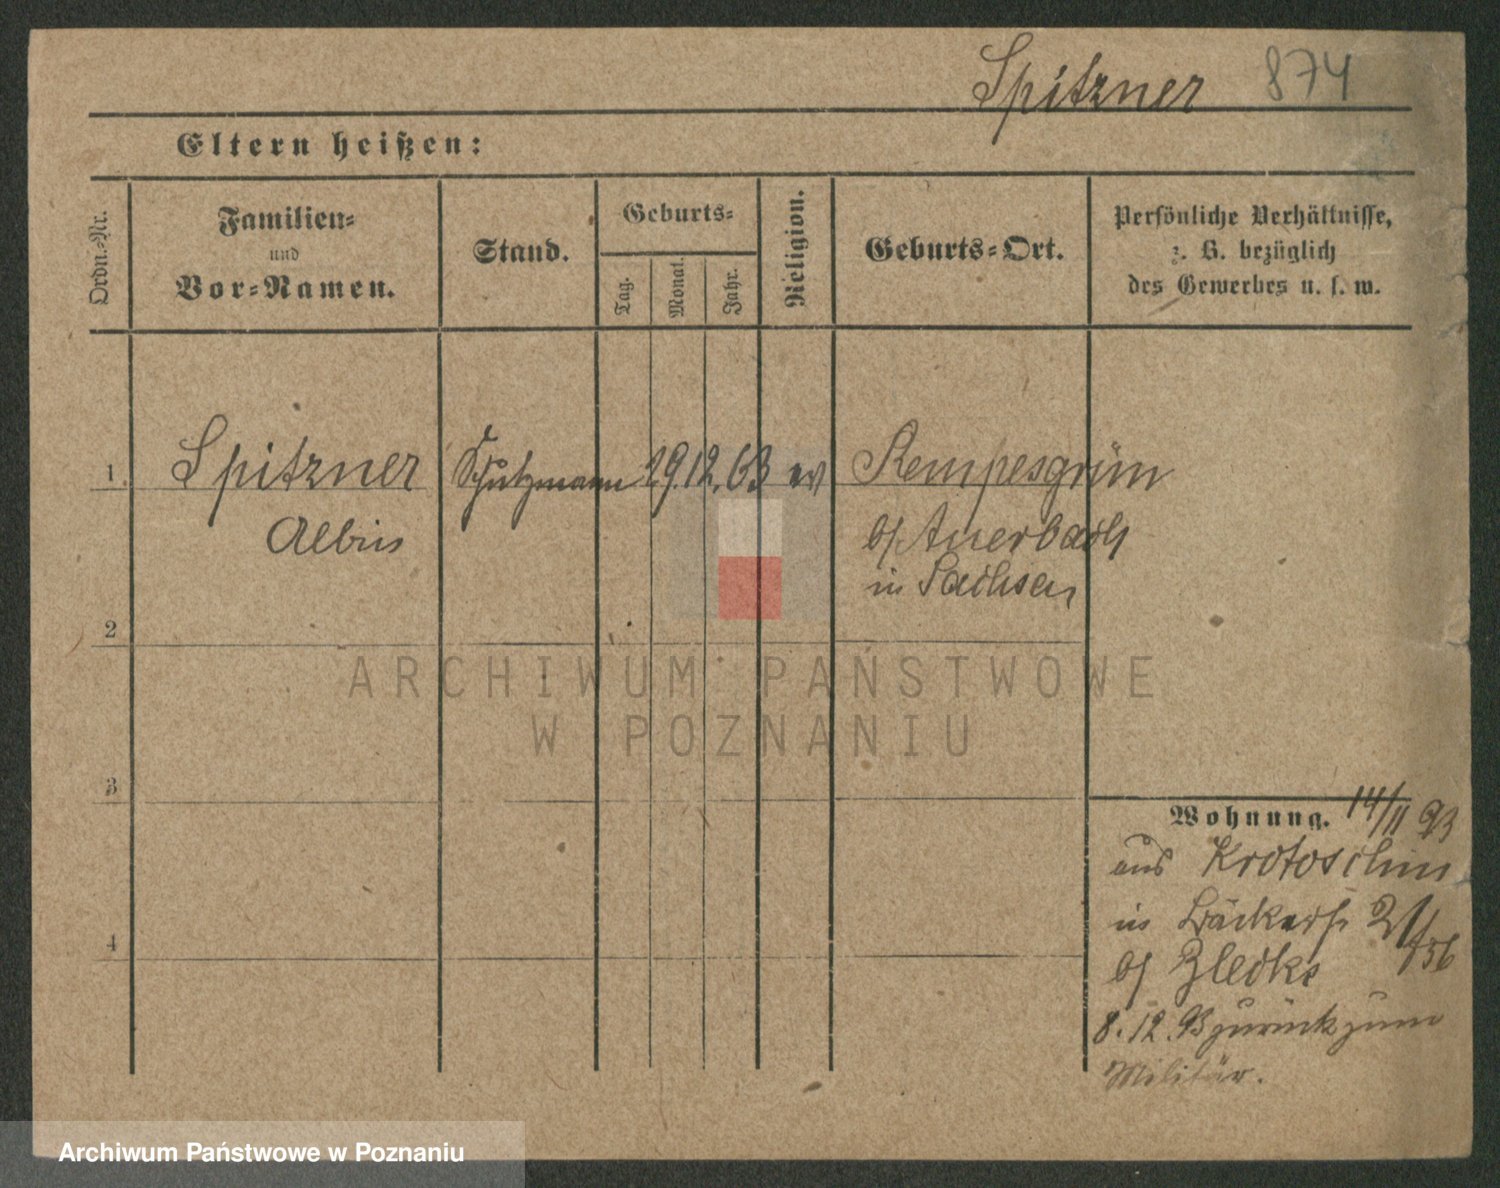 Spitzner 874
Eltern heißen:
Ordn.-Nr.
Familien-
und
Vor-Namen.
Stand.
Geburts-
Tag.
Monat.
Jahr.
Religion.
Geburts-Ort.
Persönliche Verhältnisse,
z. B. bezüglich
des Gewerbes u. s. w.
1 Spitzner Schutzmann 29.12.63 ev Rempesgrün
Albin b/ Auerbach
in Sachsen
2
ARCHIWUM PAŃSTWOWE
W POZNANIU
3
Wohnung. 14/11 93
aus Krotoschin
in Bäckerstr 21/
b/ Zledke 756
4
8.12.93 zurück zum
Militär.
Archiwum Państwowe w Poznaniu